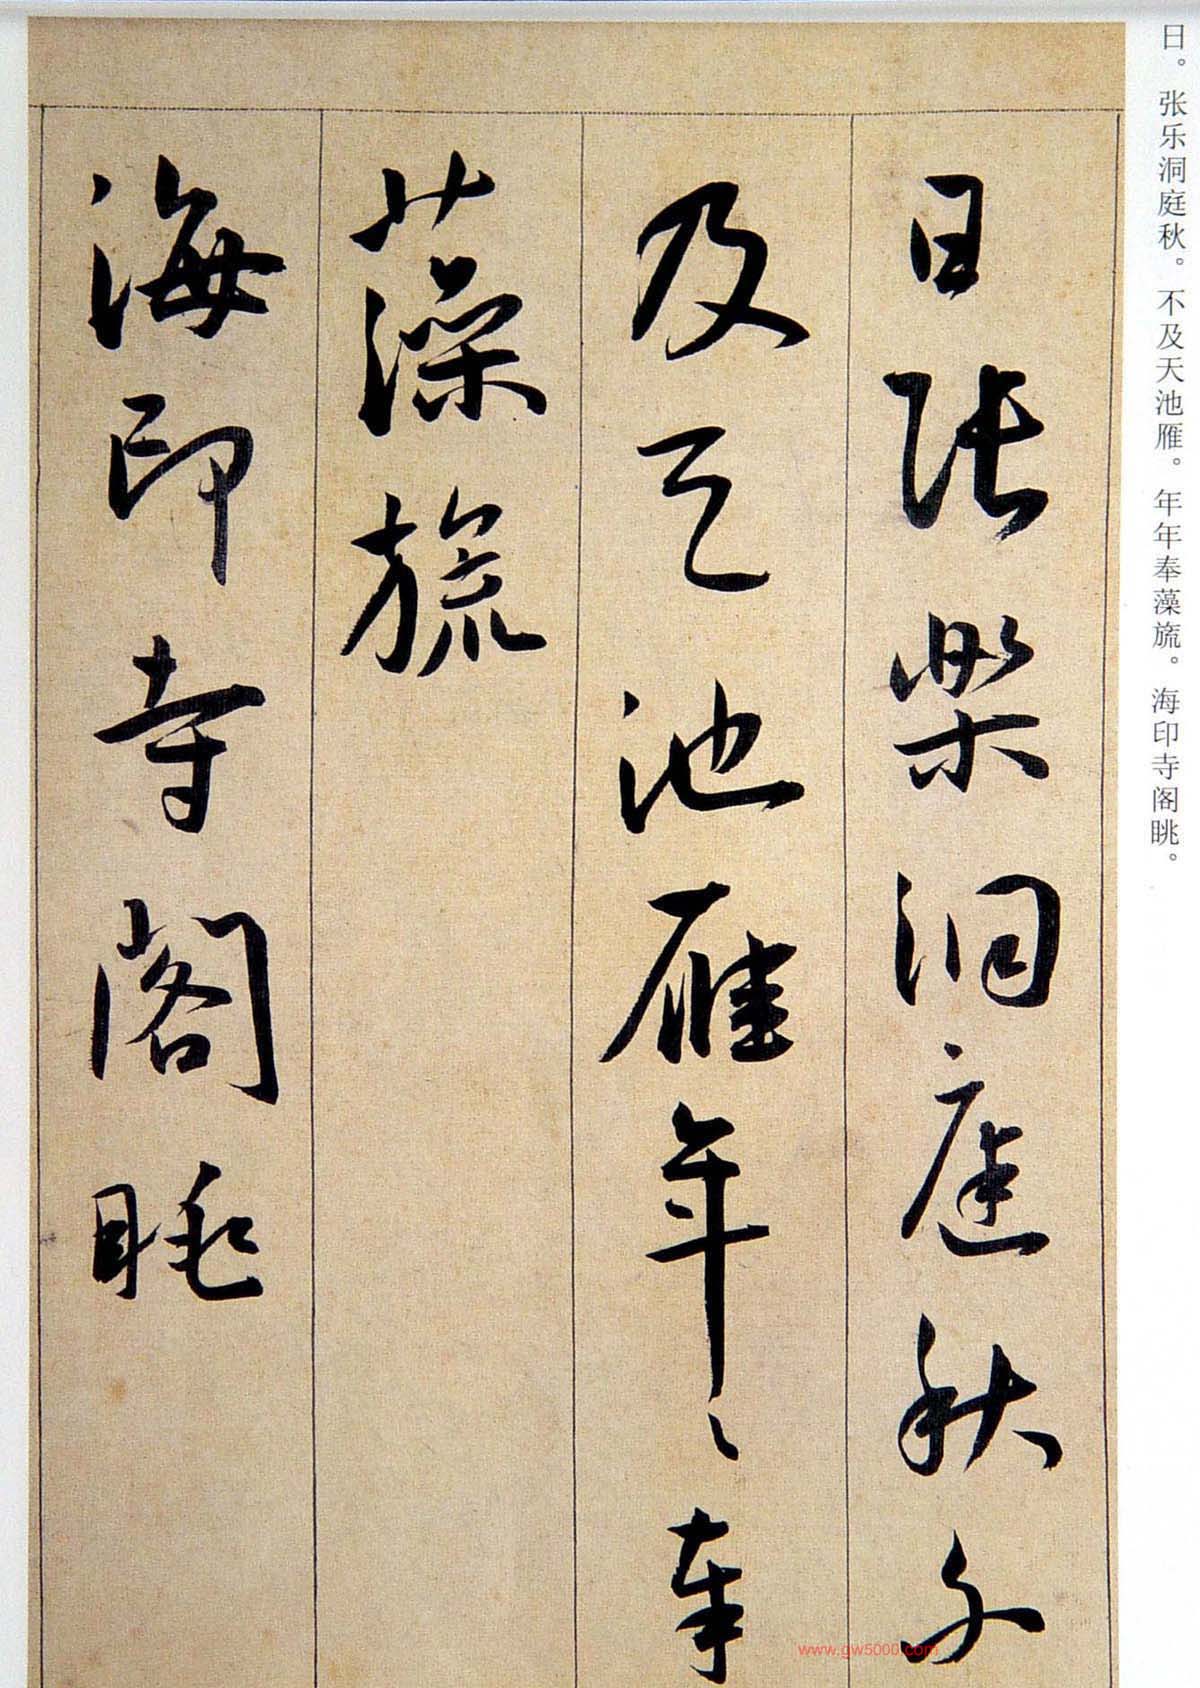 日。张乐洞庭秋。不及天池雁。年年奉藻旒。海印寺阁眺。
日张樂洞庭秋不
及天池雁年〻奉
藻旒
海印寺阁眺
www.gw5000.com